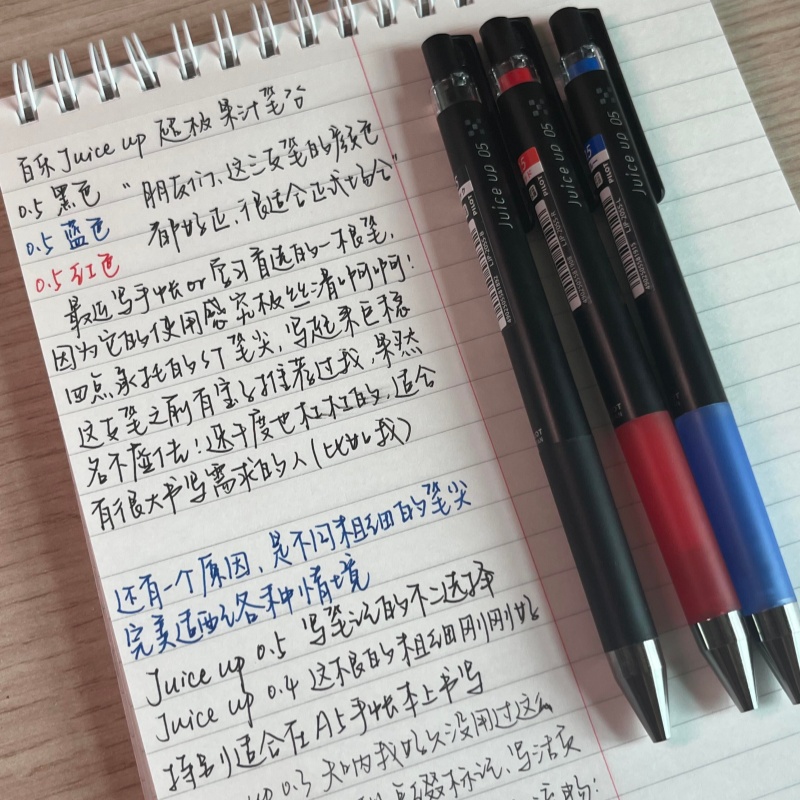 百乐Juice up 超极果汁笔合
0.5 黑色 "朋友们、这三支笔的颜色
0.5 蓝色 都好正、很适合正式场合"
0.5 红色
最近写手帐or学习首选的一根笔,
因为它的使用感究极丝滑啊啊!
四点承托的ST笔尖,写起来巨稳
这支笔之前有宝们推荐过我,果然
名不虚传!速干度也杠杠的,适合
有很大书写需求的人(比如我)
还有一个原因,是不同粗细的笔尖
完美适配了各种情境
Juice up 0.5 写笔记的不二选择
Juice up 0.4 这根的粗细刚刚好
特别适合在A5手帐本上书写
up 0.3 天呐我好久没用过这么
点缀标记,写活页
Juice up 05
PILOT
LJP-20S5-B
Juice up 05
PILOT
LJP-20S5-R
Juice up 05
PILOT
LJP-20S5-L